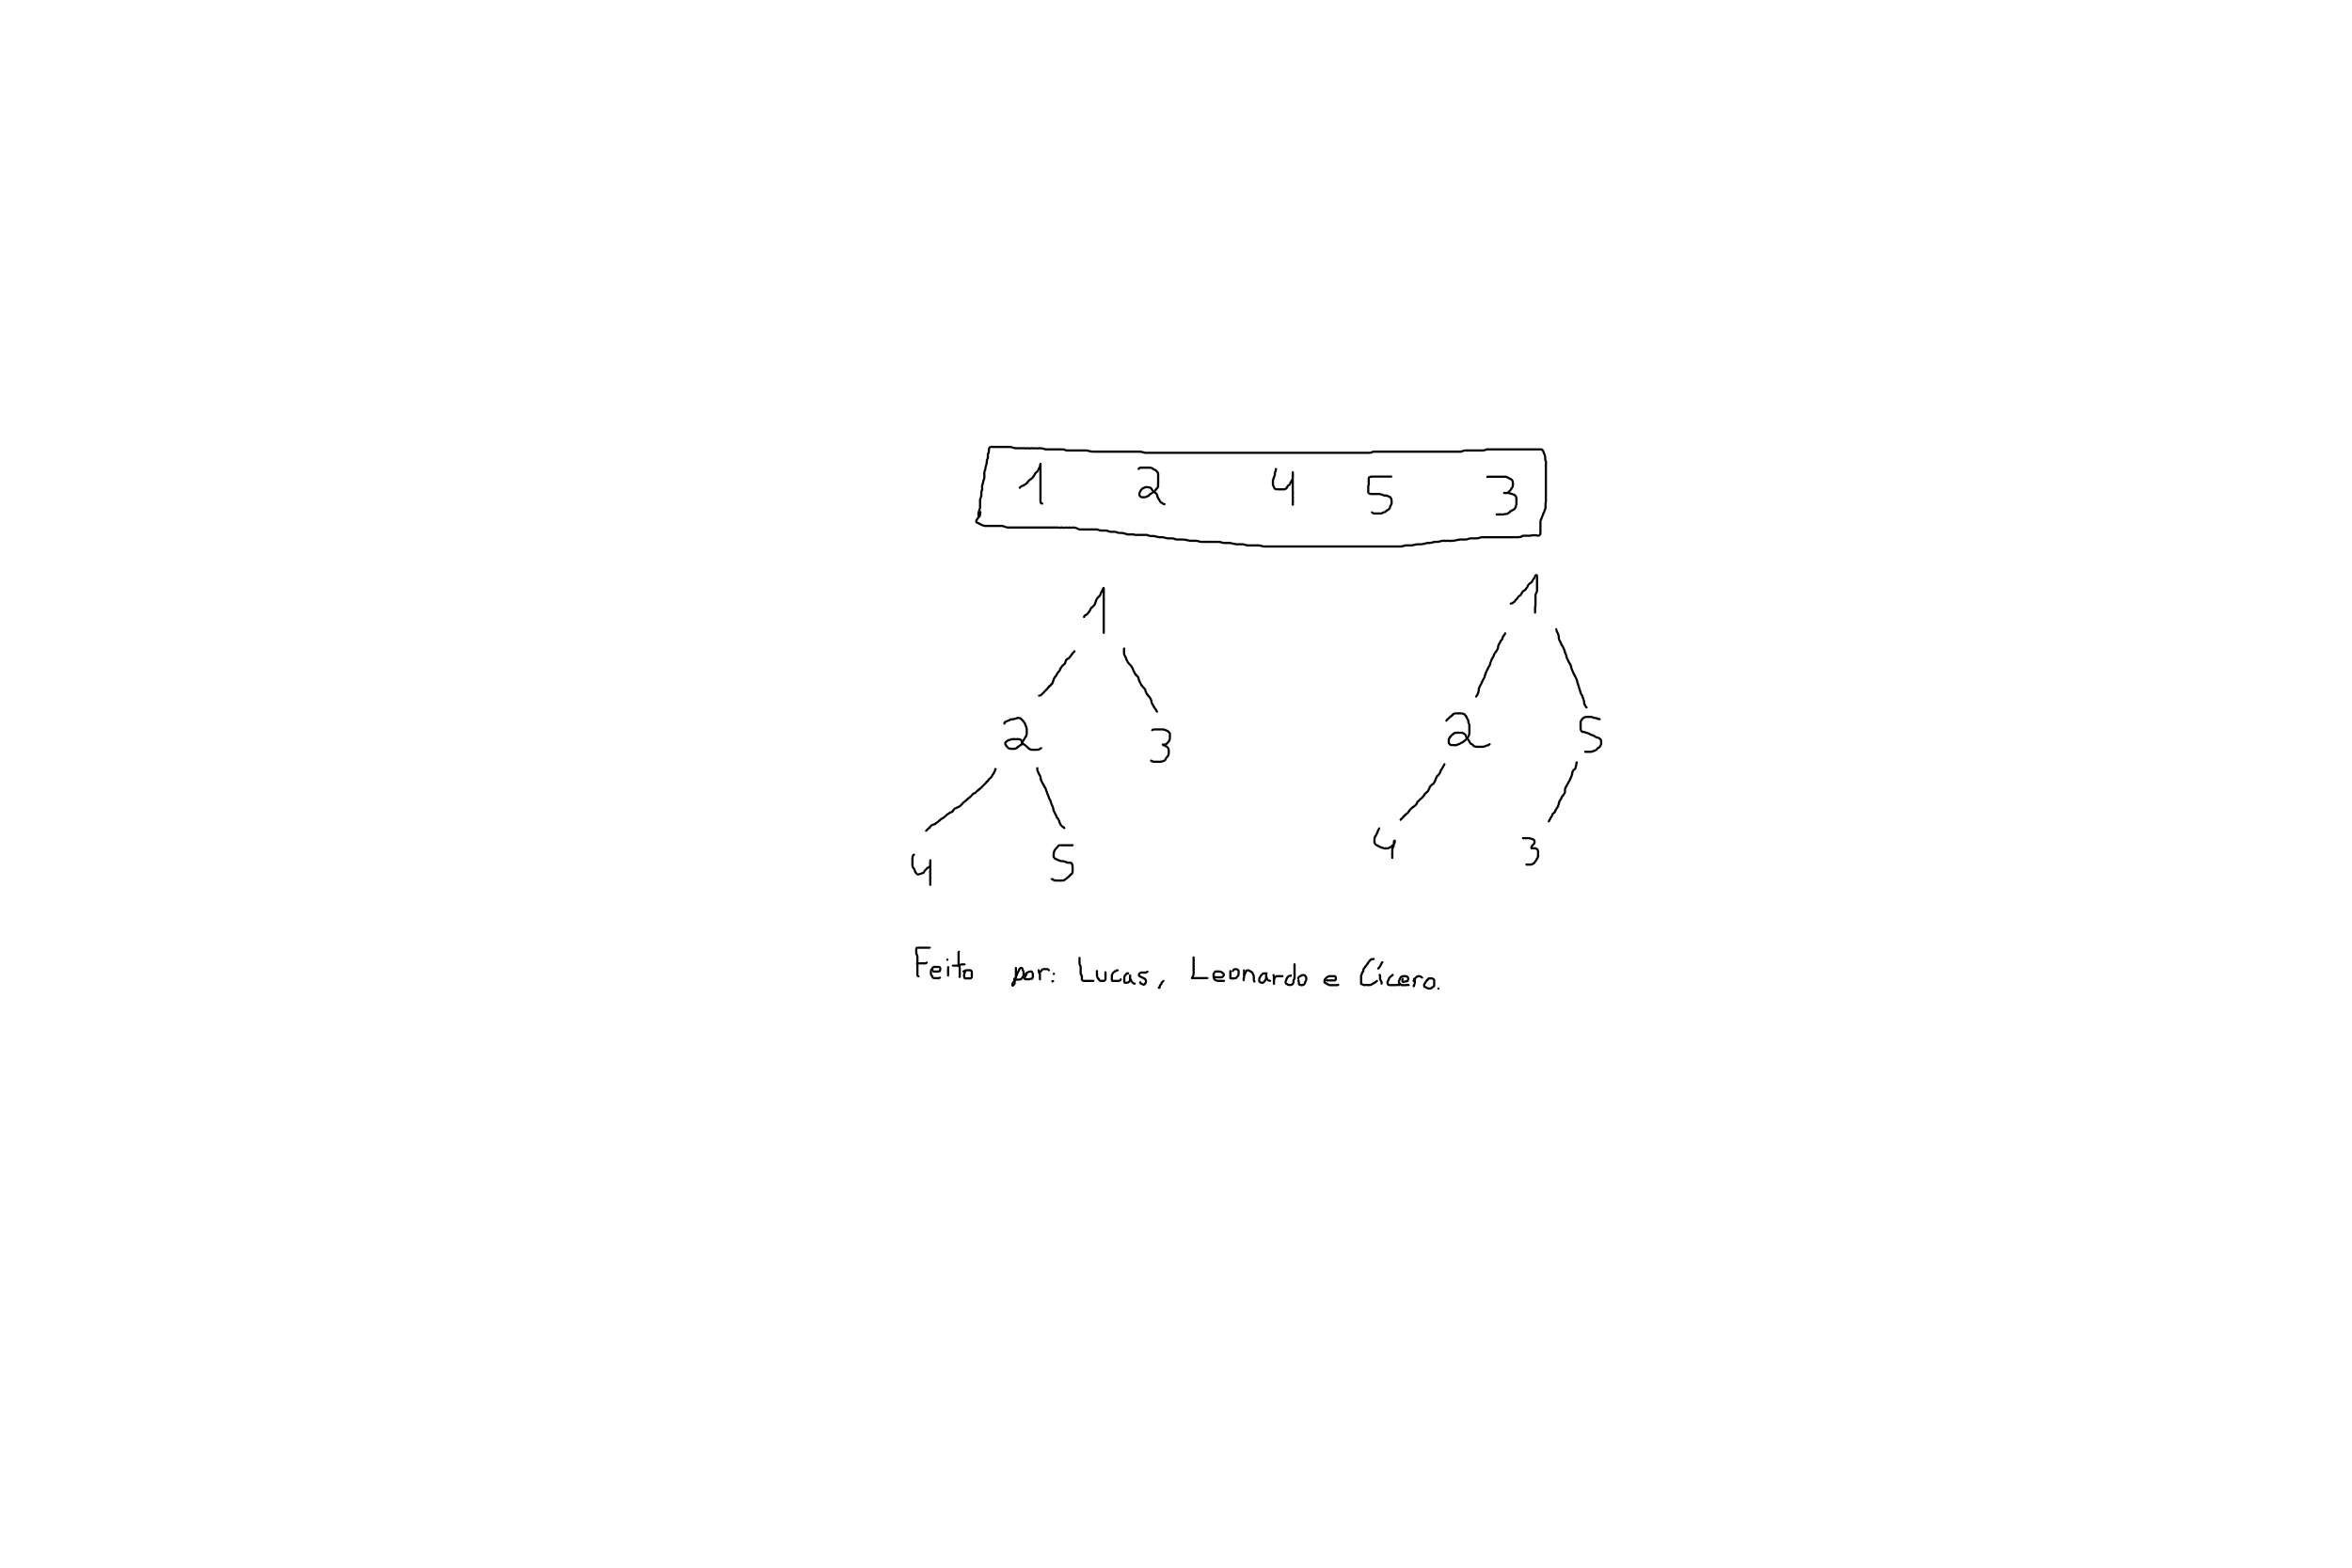 1 2 4 5 3
1 1
2 3 2 5
4 5 4 3
Feito por: Lucas, Leonardo e Cícero.